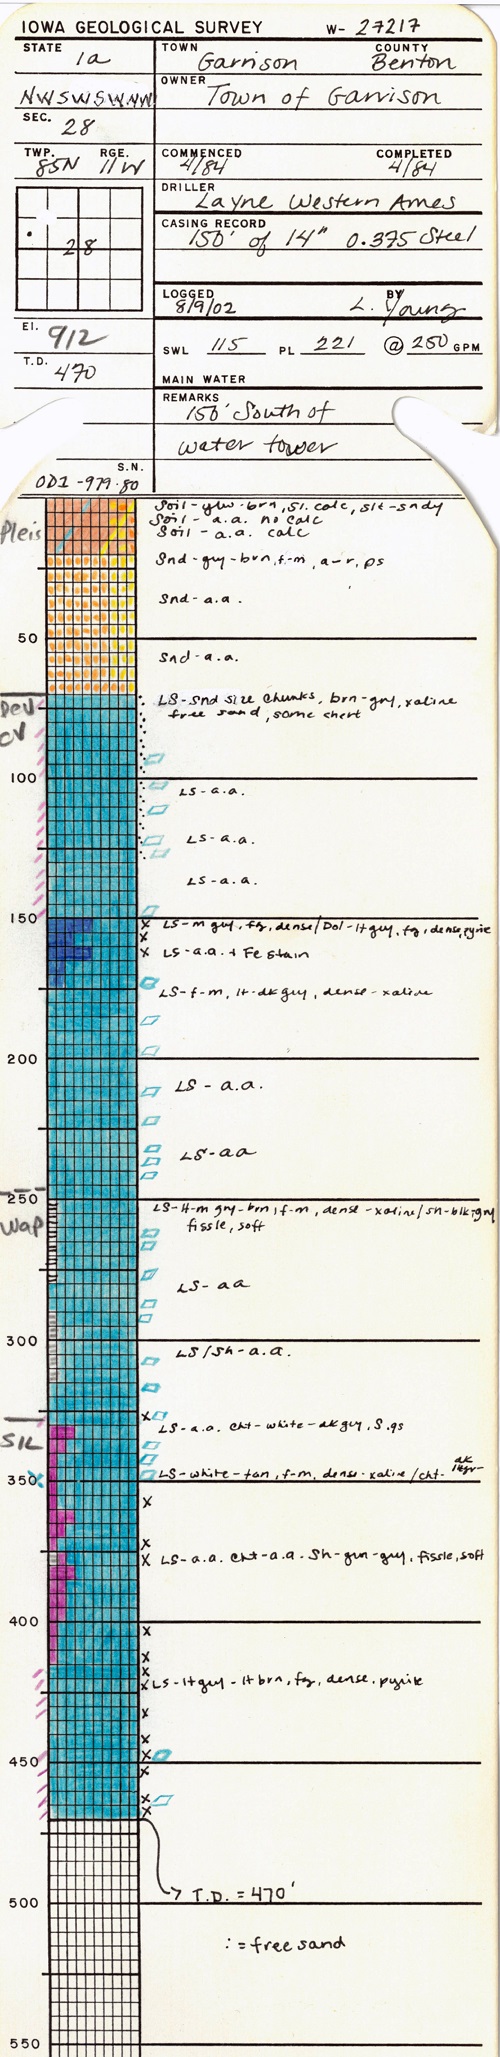 IOWA GEOLOGICAL SURVEY W- 27217
STATE Ia
TOWN Garrison COUNTY Benton
NWSWSWNW
OWNER Town of Garrison
SEC. 28
TWP. 85N RGE. 11W
COMMENCED 4/84 COMPLETED 4/84
DRILLER Layne Western Ames
CASING RECORD
150' of 14" 0.375 Steel
28
LOGGED 8/9/02 BY L. Young
El. 912
SWL 115 PL 221 @ 250 GPM
T.D. 470
MAIN WATER
REMARKS
150' South of
water tower
S.N.
OD1-979-80
Soil-ylw-brn, sl. calc, slt-sndy
Soil - a.a. no calc
Pleis
Soil - a.a. calc
Snd-gry-brn, f-m, a-r, ps
Snd-a.a.
50
Snd-a.a.
Dev
LS-Snd size chunks, brn-gry, xaline
free sand, some chert
CV
100
LS-a.a.
LS-a.a.
LS-a.a.
150
LS-m gry, fg, dense/Dol-lt gry, fg, dense, pyrie
LS-a.a. + Fe stain
LS-f-m, lt-dk gry, dense-xaline
200
LS - a.a.
LS-aa
250
Wap
LS-lt-m gry-brn, f-m, dense-xaline/sh-blk, gry
fissle, soft
LS-aa
300
LS/Sh-a.a.
SIL
LS-a.a. cht-white-dk gry, S.gs
350
LS-white-tan, f-m, dense-xaline/cht- dk
LS-a.a. cht-a.a. Sh-grn-gry, fissle, soft
400
LS-lt gry-lt brn, fg, dense, pyrite
450
T.D. = 470'
500
:=free sand
550